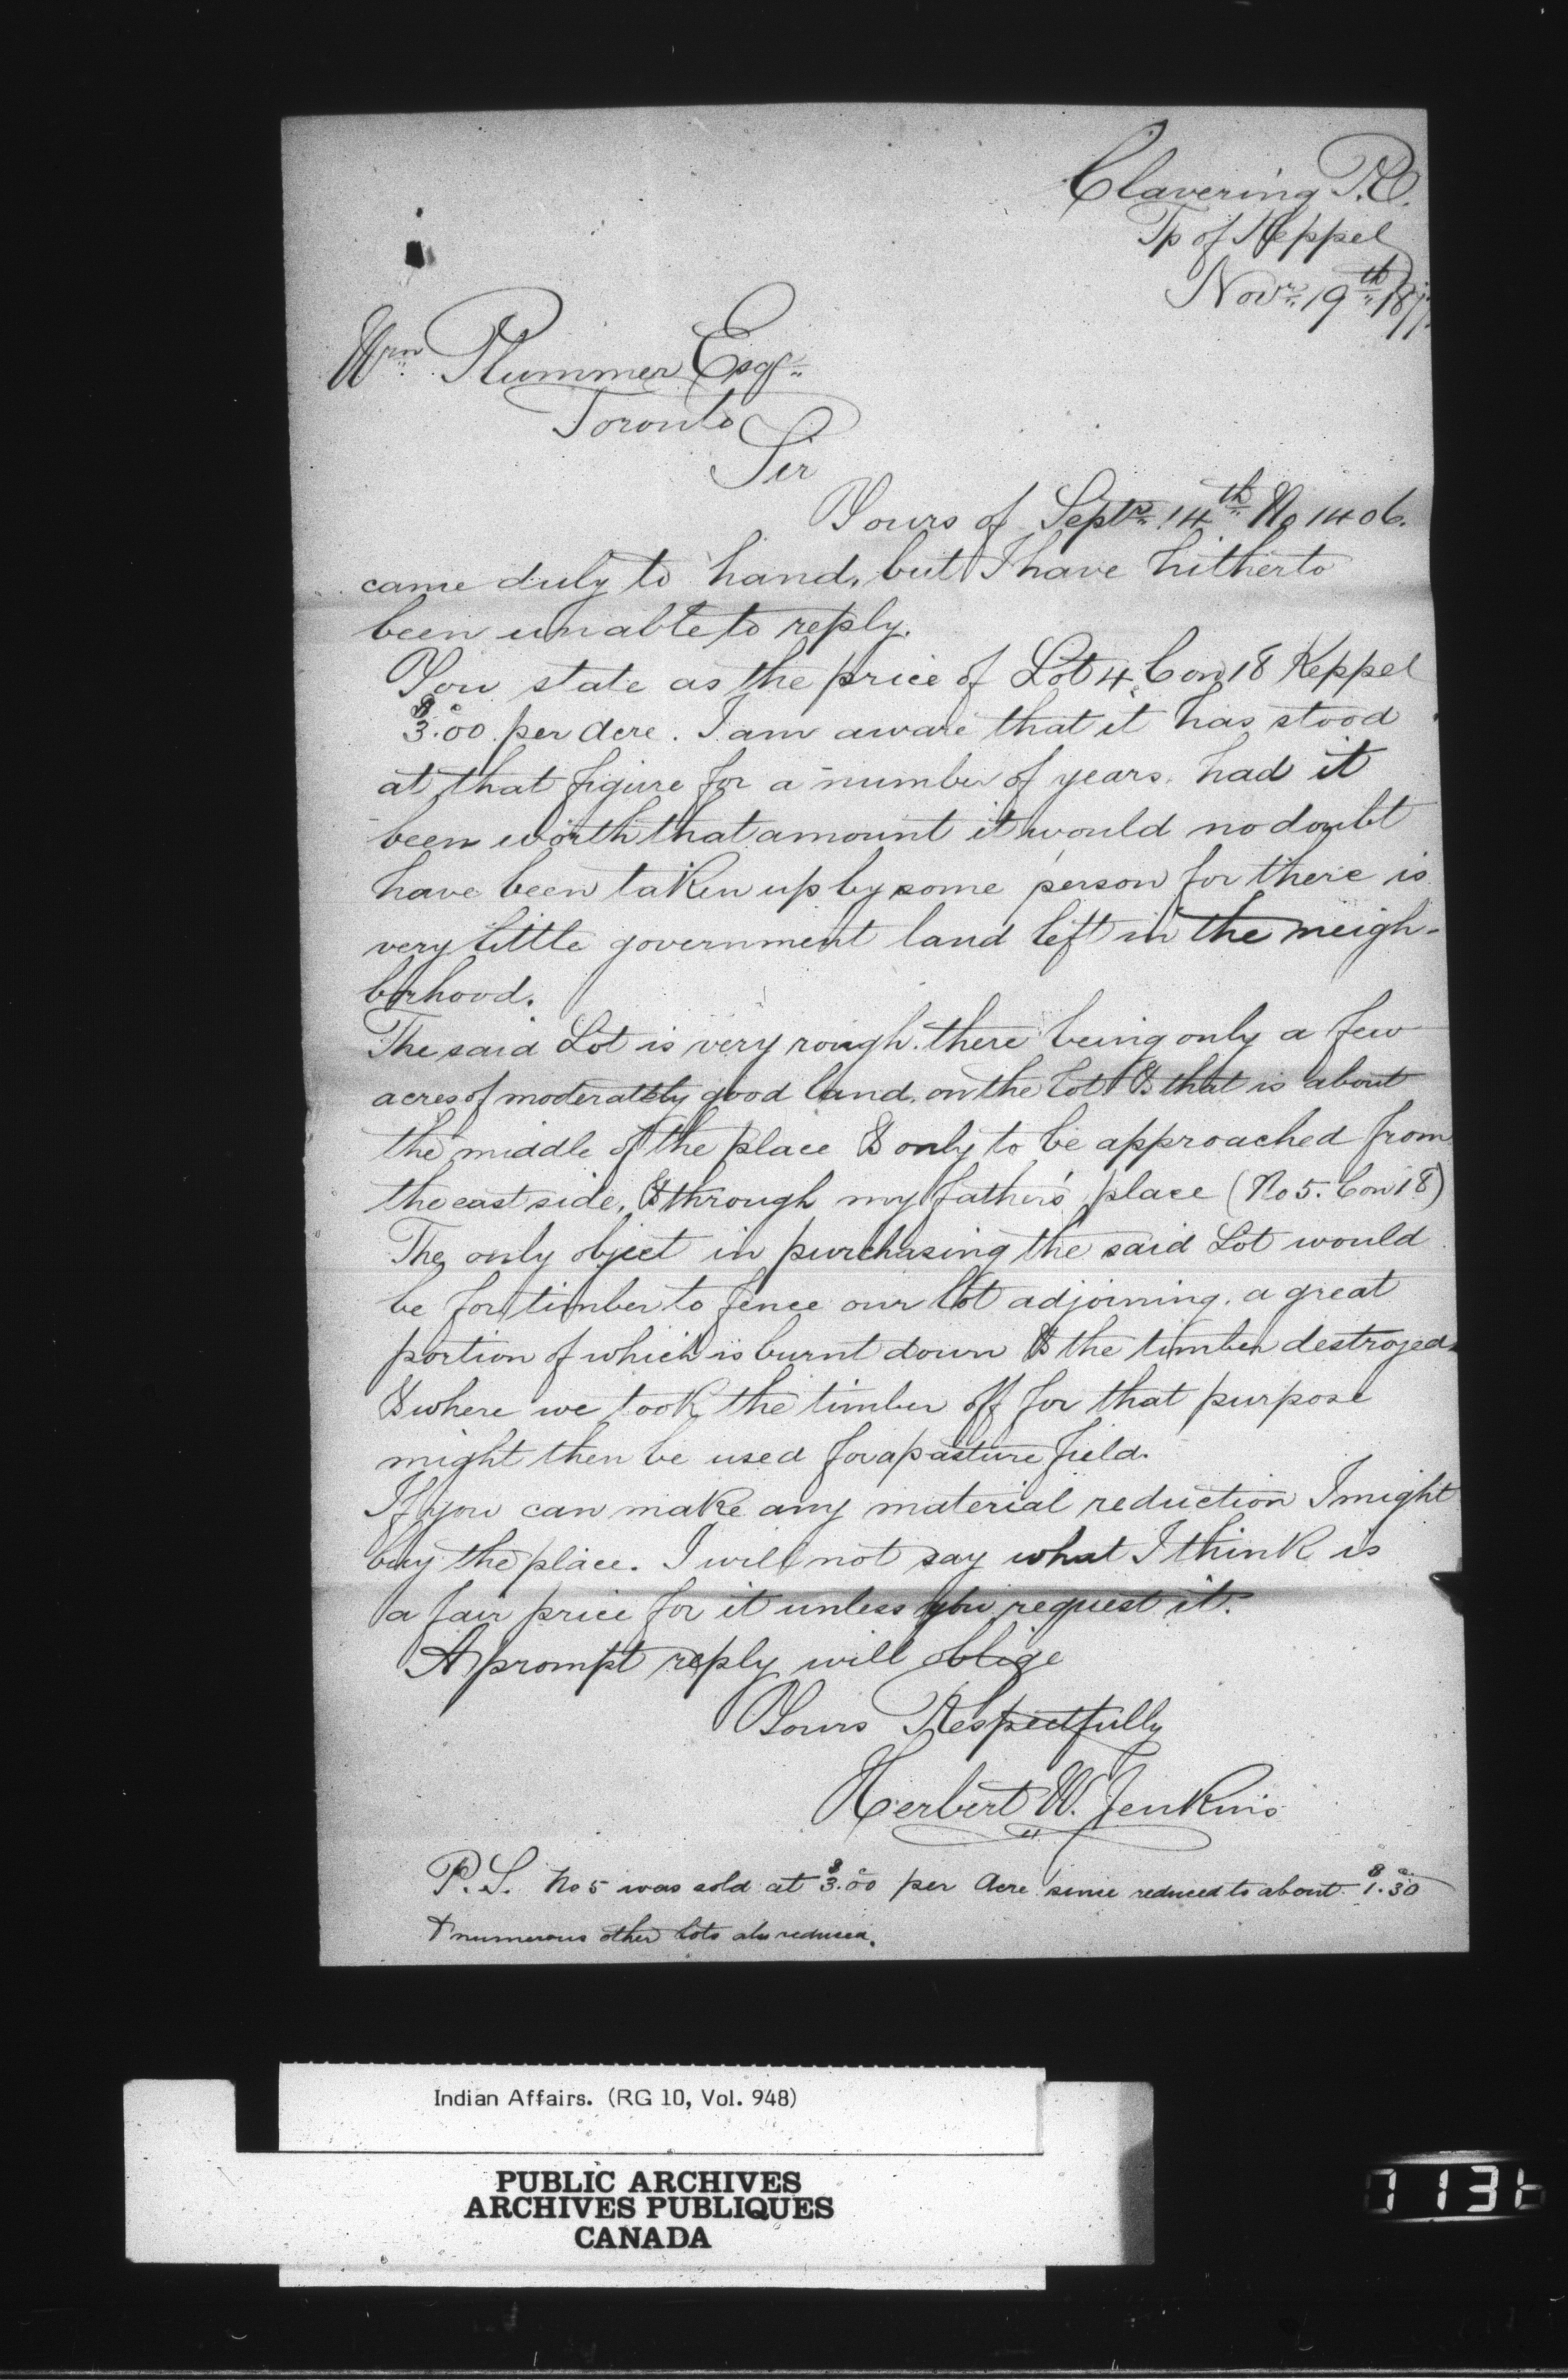 Clavering P.O.
Tp of Keppel
Novr. 19th 1877
Wm. Plummer Esqr.
Toronto
Sir
Yours of Septr. 14th No 1406.
came duly to hand, but I have hitherto
been unable to reply.
You state as the price of Lot 4, Con 18 Keppel
$3.00 per Acre. I am aware that it has stood
at that figure for a number of years. had it
been worth that amount it would no doubt
have been taken up by some person for there is
very little government land left in the neigh-
borhood.
The said Lot is very rough. there being only a few
acres of moderately good land, on the Lot & that is about
the middle of the place & only to be approached from
the east side, & through my father's place (No 5. Con 18)
The only object in purchasing the said Lot would
be for timber to fence our lot adjoining. a great
portion of which is burnt down & the timber destroyed.
& where we took the timber off for that purpose
might then be used for a pasture field.
If you can make any material reduction I might
buy the place. I will not say what I think is
a fair price for it unless you request it.
A prompt reply will oblige
Yours Respectfully
Herbert W. Jenkins
P.S. No 5 was sold at $3.00 per Acre since reduced to about $1.30
& numerous other lots also reduced.
Indian Affairs. (RG 10, Vol. 948)
PUBLIC ARCHIVES
ARCHIVES PUBLIQUES
CANADA